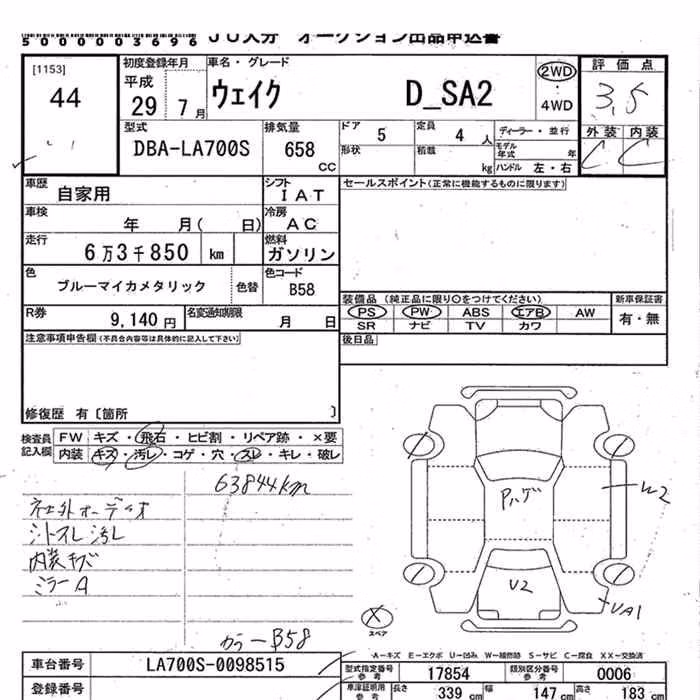 5000003696 JU大分 オークション出品申込書
[1153]
44
初度登録年月
平成
29年 7月
車名・グレード
ウェイク D_SA2
2WD
・
4WD
評価点
3,5
外装 内装
C C
型式
DBA-LA700S
排気量
658 CC
ドア 5
定員 4 人
ディーラー・並行
形状
積載 kg
モデル年式 年
ハンドル 左・右
車歴
自家用
シフト
IAT
セールスポイント(正常に機能するものに限ります)
車検
年 月( 日)
冷房
AC
走行
6万3千850 km
燃料
ガソリン
色
ブルーマイカメタリック
色替
色コード
B58
装備品(純正品に限り○をつけてください)
新車保証書
PS PW ABS エアB AW
有・無
SR ナビ TV カワ
R券
9,140円
名変通知期限
月 日
後日品
注意事項申告欄(不具合内容等は具体的に記入して下さい)
修復歴 有〔箇所 〕
検査員記入欄
FW キズ・飛石・ヒビ割・リペア跡・×要
内装 キズ・汚レ・コゲ・穴・スレ・キレ・破レ
63844km
社外オーディオ
シートスレ汚レ
内装キズ
ミラーA
Pハゲ
W2
U2
UA1
スペア
カラーB58
A-キズ E-エクボ U-凹み W-補修跡 S-サビ C-腐食 XX-交換済
車台番号
LA700S-0098515
型式指定番号 参考
17854
類別区分番号 参考
0006
登録番号
車庫証明用 参考
長さ 339 cm
幅 147 cm
高さ 183 cm